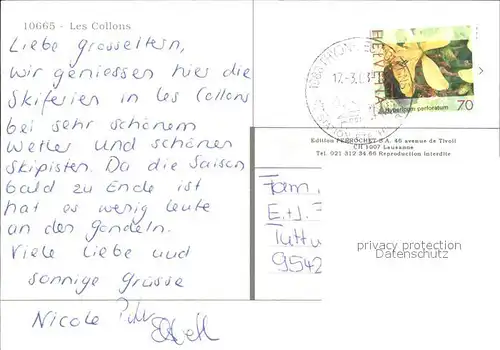 10665 - Les Collons
Liebe grosseltern,
wir geniessen hier die
Skiferien in les Collons
bei sehr schönem
Wetter und schönen
Skipisten. Da die Saison
bald zu Ende ist
hat es wenig leute
an den gondeln.
Viele Liebe und
sonnige Grüsse
Nicole
HELVETIA
Hypericum perforatum
70
Edition PERROCHET S.A. 46 avenue de Tivoli
CH 1007 Lausanne
Tel. 021 312 34.66 Reproduction interdite
Fam.
E.+J.
9542
privacy protection
Datenschutz